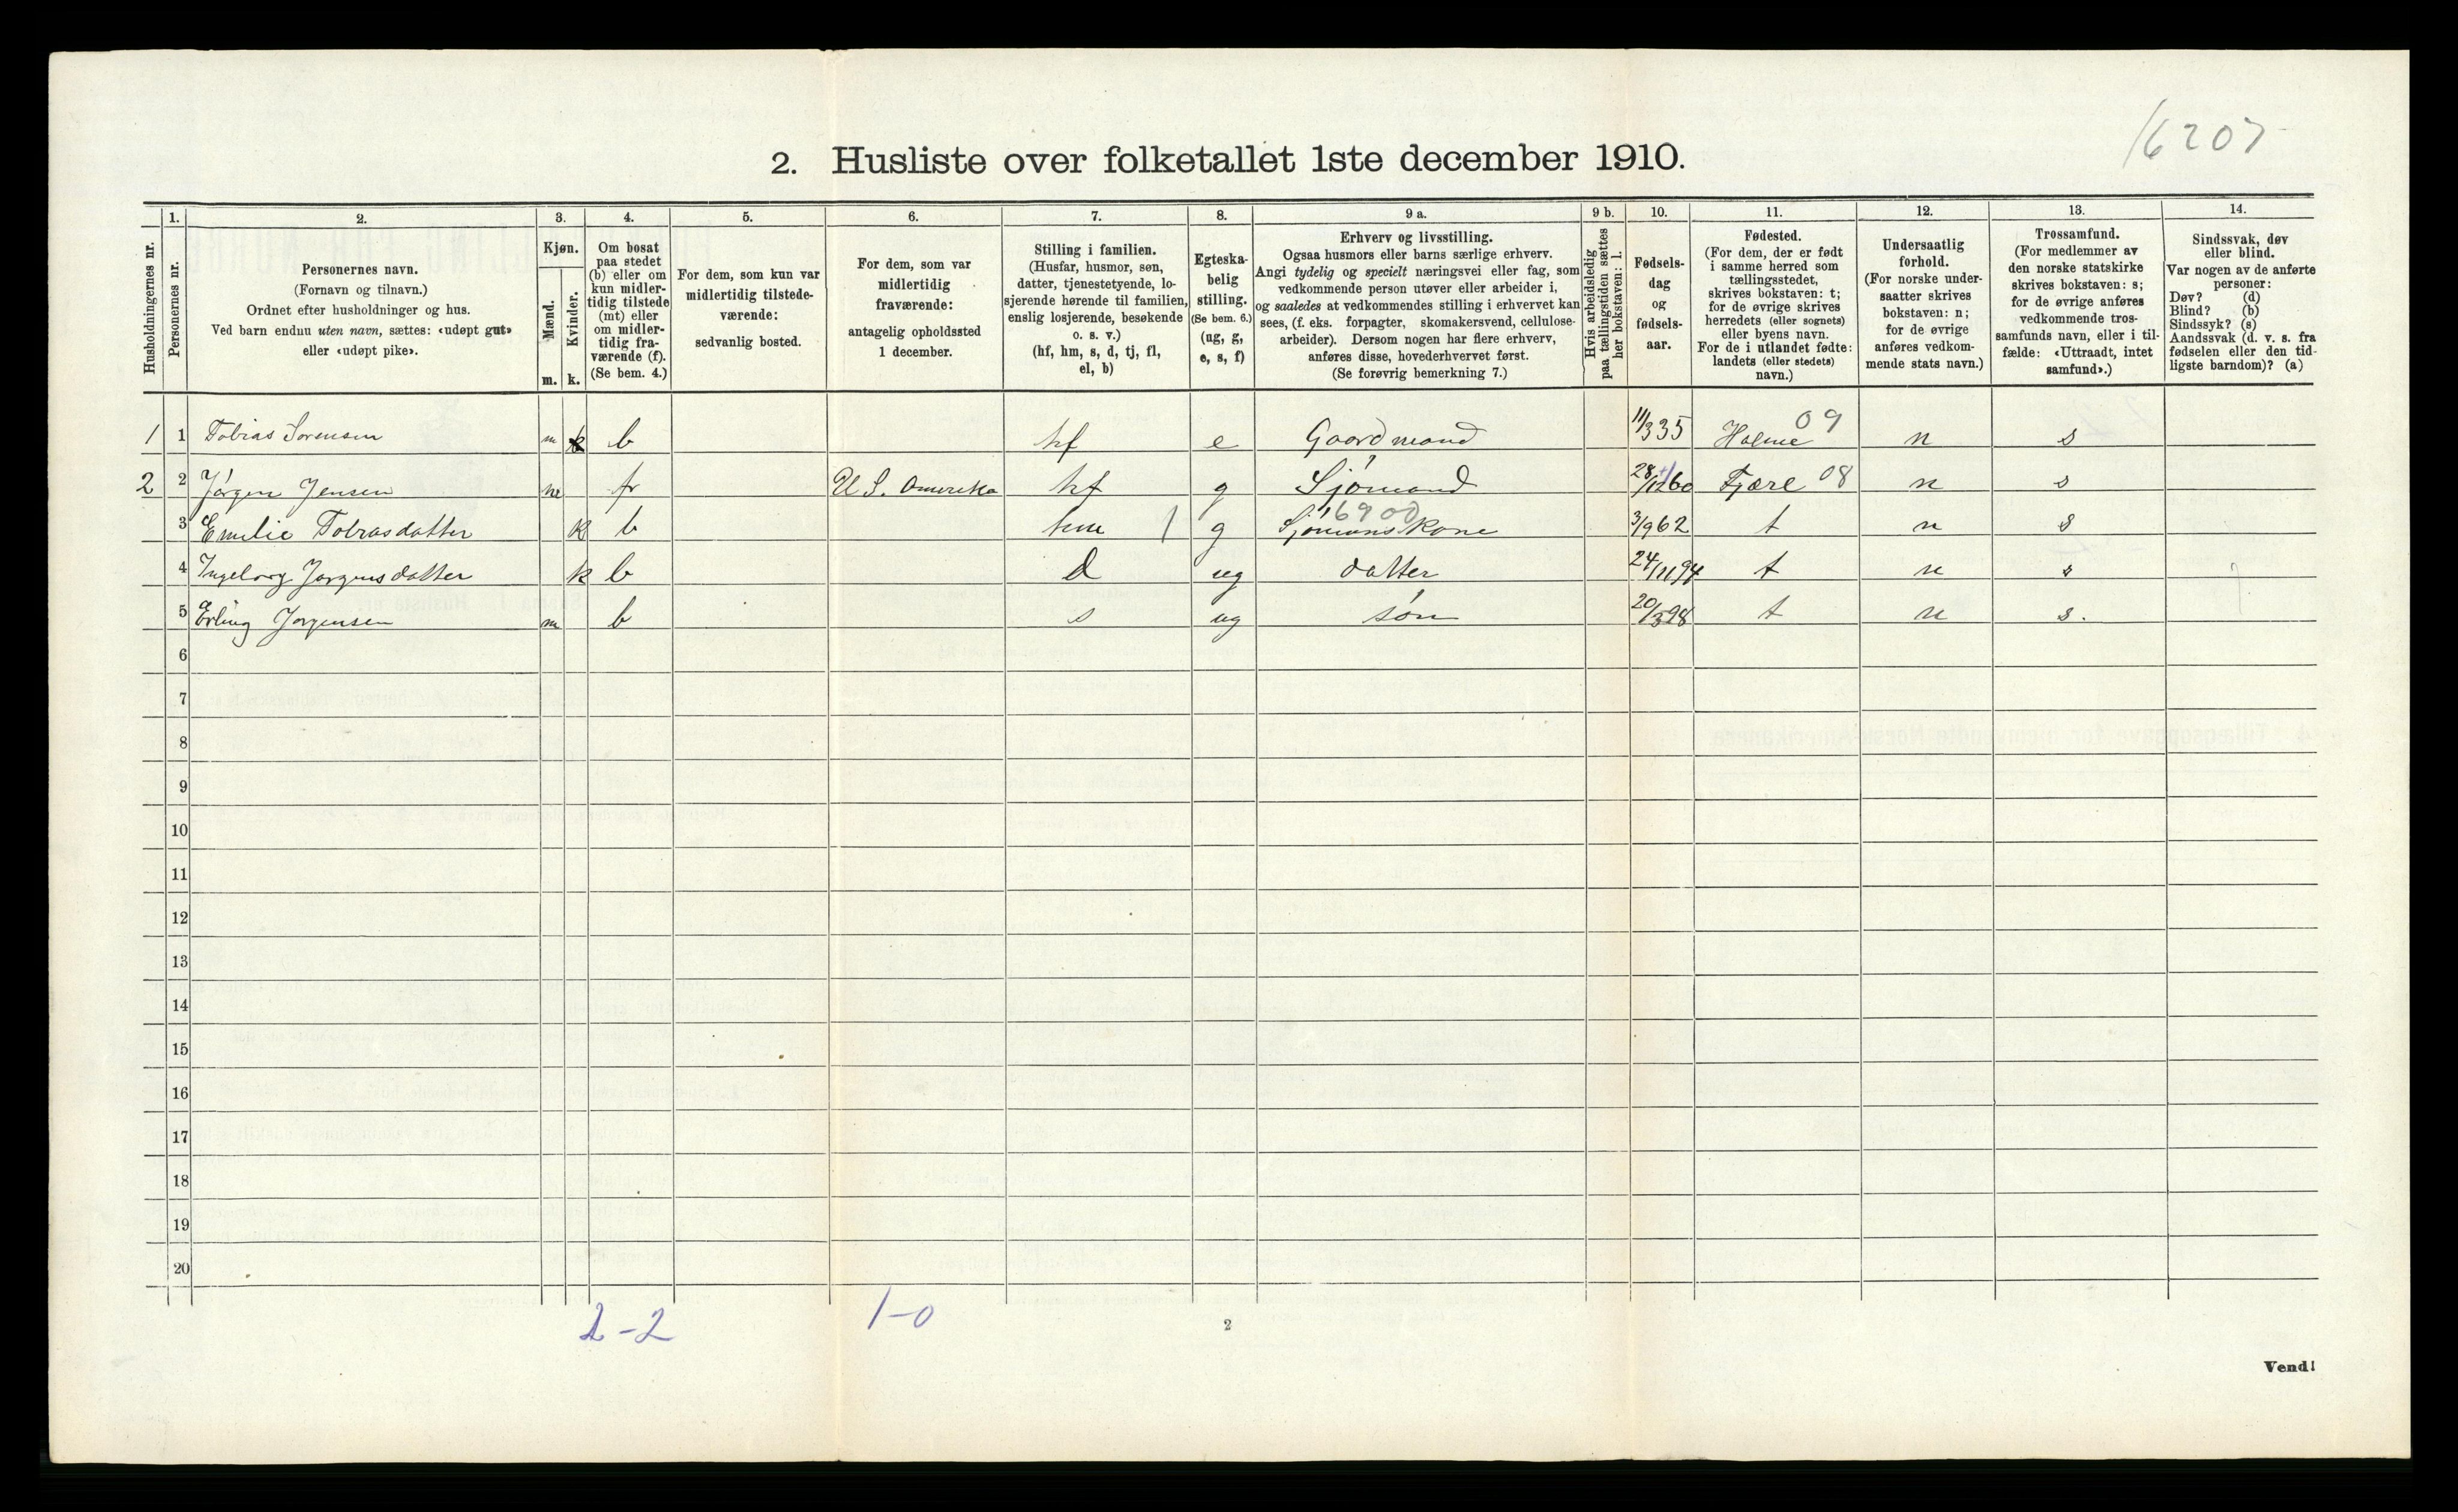 16207
2. Husliste over folketallet 1ste december 1910.
Husholdningernes nr.
1.
Personernes nr.
2.
Personernes navn.
(Fornavn og tilnavn.)
Ordnet efter husholdninger og hus.
Ved barn endnu uten navn, sættes: «udøpt gut»
eller «udøpt pike».
3.
Kjøn.
Mænd.
Kvinder.
m. k.
4.
Om bosat
paa stedet
(b) eller om
kun midler-
tidig tilstede
(mt) eller
om midler-
tidig fra-
værende (f).
(Se bem. 4.)
5.
For dem, som kun var
midlertidig tilstede-
værende:
sedvanlig bosted.
6.
For dem, som var
midlertidig
fraværende:
antagelig opholdssted
1 december.
7.
Stilling i familien.
(Husfar, husmor, søn,
datter, tjenestetyende, lo-
sjerende hørende til familien,
enslig losjerende, besøkende
o. s. v.)
(hf, hm, s, d, tj, fl,
el, b)
8.
Egteska-
belig
stilling.
(Se bem. 6.)
(ug, g,
e, s, f)
9 a.
Erhverv og livsstilling.
Ogsaa husmors eller barns særlige erhverv.
Angi tydelig og specielt næringsvei eller fag, som
vedkommende person utøver eller arbeider i,
og saaledes at vedkommendes stilling i erhvervet kan
sees, (f. eks. forpagter, skomakersvend, cellulose-
arbeider). Dersom nogen har flere erhverv,
anføres disse, hovederhvervet først.
(Se forøvrig bemerkning 7.)
9 b.
Hvis arbeidsledig
paa tællingstiden sættes
her bokstaven: l.
10.
Fødsels-
dag
og
fødsels-
aar.
11.
Fødested.
(For dem, der er født
i samme herred som
tællingsstedet,
skrives bokstaven: t;
for de øvrige skrives
herredets (eller sognets)
eller byens navn.
For de i utlandet fødte:
landets (eller stedets)
navn.)
12.
Undersaatlig
forhold.
(For norske under-
saatter skrives
bokstaven: n;
for de øvrige
anføres vedkom-
mende stats navn.)
13.
Trossamfund.
(For medlemmer av
den norske statskirke
skrives bokstaven: s;
for de øvrige anføres
vedkommende tros-
samfunds navn, eller i til-
fælde: «Uttraadt, intet
samfund».)
14.
Sindssvak, døv
eller blind.
Var nogen av de anførte
personer:
Døv? (d)
Blind? (b)
Sindssyk? (s)
Aandssvak (d. v. s. fra
fødselen eller den tid-
ligste barndom)? (a)
1 1 Tobias Sorensen m k b hf e Gaardmand 11/3 35 Holme 09 n s
2 2 Jörgen Jensen m fr U S. Amerika hf g Sjömand 28/12 60 Fjære 08 n s
3 Emilie Tobiasdatter k b hm 1 g 6900 Sjömans kone 3/9 62 t n s
4 Ingeborg Jørgensdatter k b d ug datter 24/11 94 t n s
5 Erling Jorgensen m b s ug sön 20/3 98 t n s.
6
7
8
9
10
11
12
13
14
15
16
17
18
19
20
2-2
1-0
2
Vend!